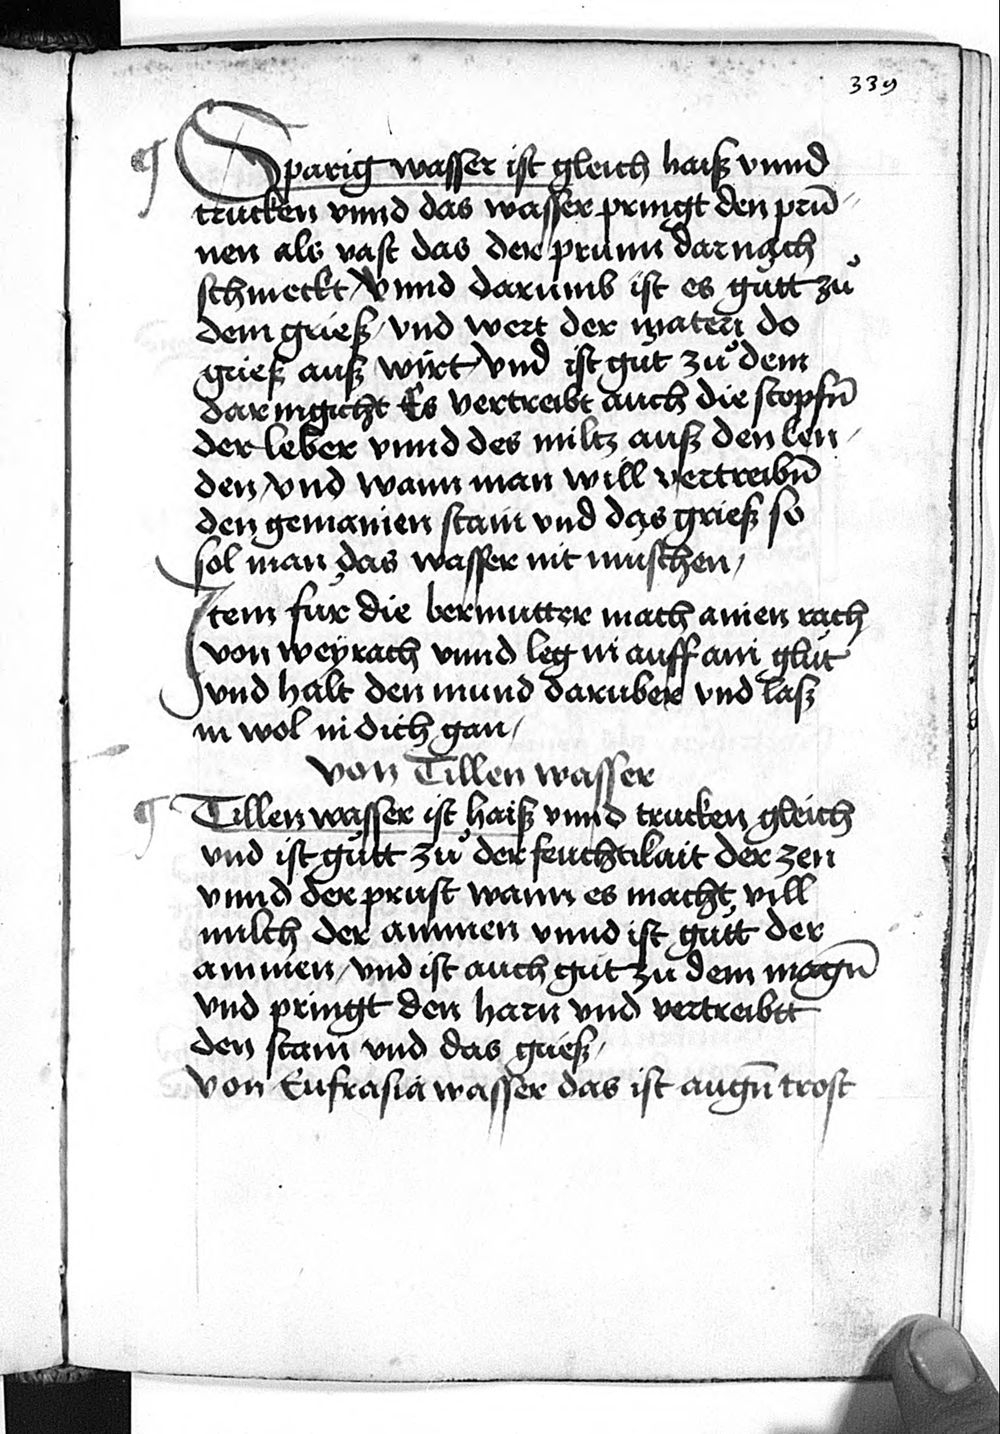 339
Sparig wasser ist gleich haiß vnnd
trucken vnnd das wasser pringt den prū=
nen als vast das der prunn darnach
schmeckt / Vnnd darumb ist es gůtt zů
dem grieß / vnd wert der matery do
grieß auß wirt / vnd ist gůt zů dem
darmgicht Es vertreibt auch die stopfūn
der leber vnnd des miltz auß den len /
den / vnd wann man will vertreibn̄
den gemainen stain vnd das grieß so
sol man das wasser nit muschen /
Item fur die bermutter mach ainen rach
von weyrach vnnd leg in auff ain glůt
vnd halt den mund daruber vnd laß
in wol in dich gan /
von Tillen wasser
Tillen wasser ist haiß vnnd trucken gleich
vnd ist gůtt zů der feuchtikait der zen
vnnd der prust wann es macht vill
milch der ammen vnnd ist gůtt der
ammen / vnd ist auch gůt zu dem magn̄
vnd pringt den harn vnd vertreibtt
den stain vnd das grieß /
von Eufrasia wasser das ist augn̄ trost